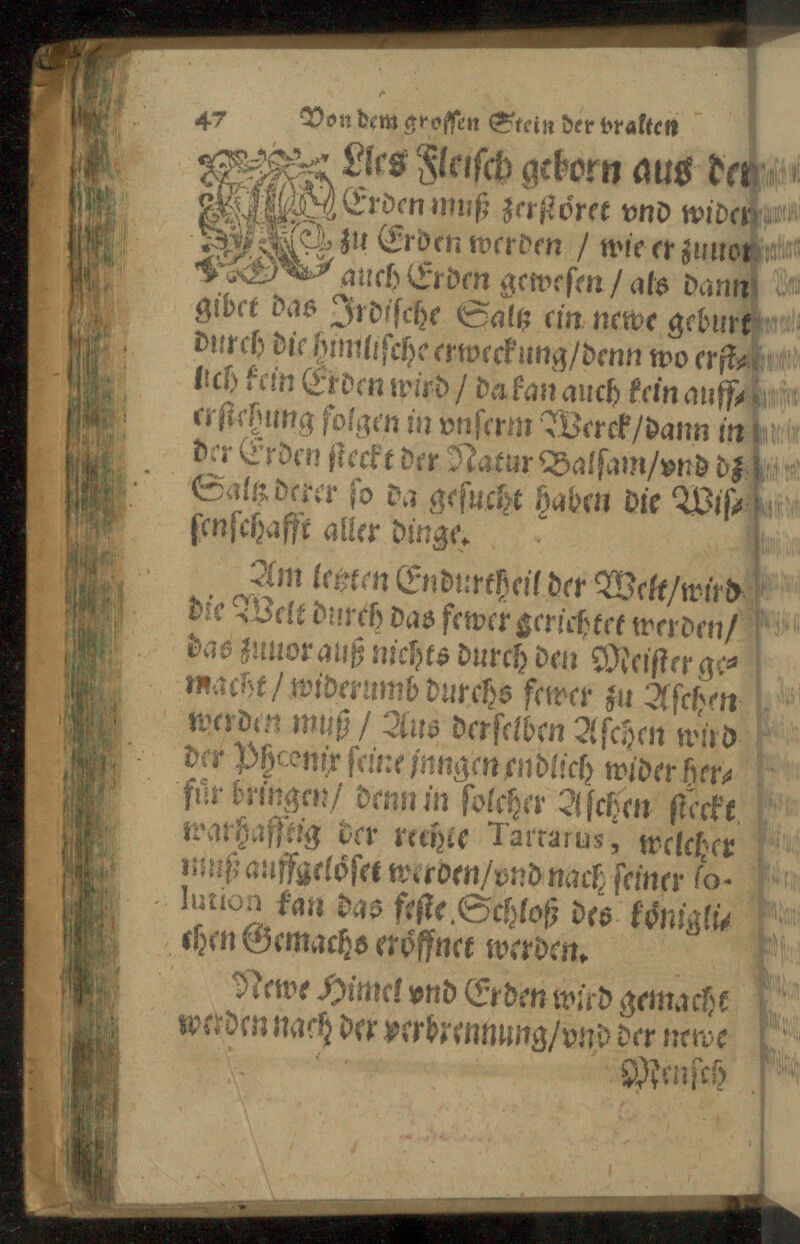 47 Von dem groſſen Stein der vralten
Lles Fleiſch geborn aus der
Erden muß zerſtöret vnd wider
zu Erden werden / wie er zuuor
auch Erden geweſen / als dann
gibet das Irdiſche Saltz ein newe geburt
durch die himliſche erweckung/denn wo erſt⸗
lich kein Erden wird / da kan auch kein auff⸗
erſtehung folgen in vnſerm Werck/dann in
der Erden ſteckt der Natur Balſam/vnd dz
Saltz derer ſo da geſucht haben die Wiſ⸗
ſenſchafft aller dinge.
Am letzten Endurtheil der Welt/wird
die Welt durch das fewer gerichtet werden/
das zuuor auß nichts durch den Meiſter ge⸗
macht / widerumb durchs fewer zu Aſchen
werden muß / Aus derſelben Aſchen wird
der Phœnix ſeine jungen endlich wider her⸗
für bringen/ denn in ſolcher Aſchen ſteckt
warhafftig der rechte Tartarus, welcher
muß auffgelöſet werden/vnd nach ſeiner ſo-
lution kan das feſte Schloß des königli⸗
chen Gemachs eröffnet werden.
Newe Himel vnd Erden wird gemacht
werden nach der verbrennung/vnd der newe
Menſch